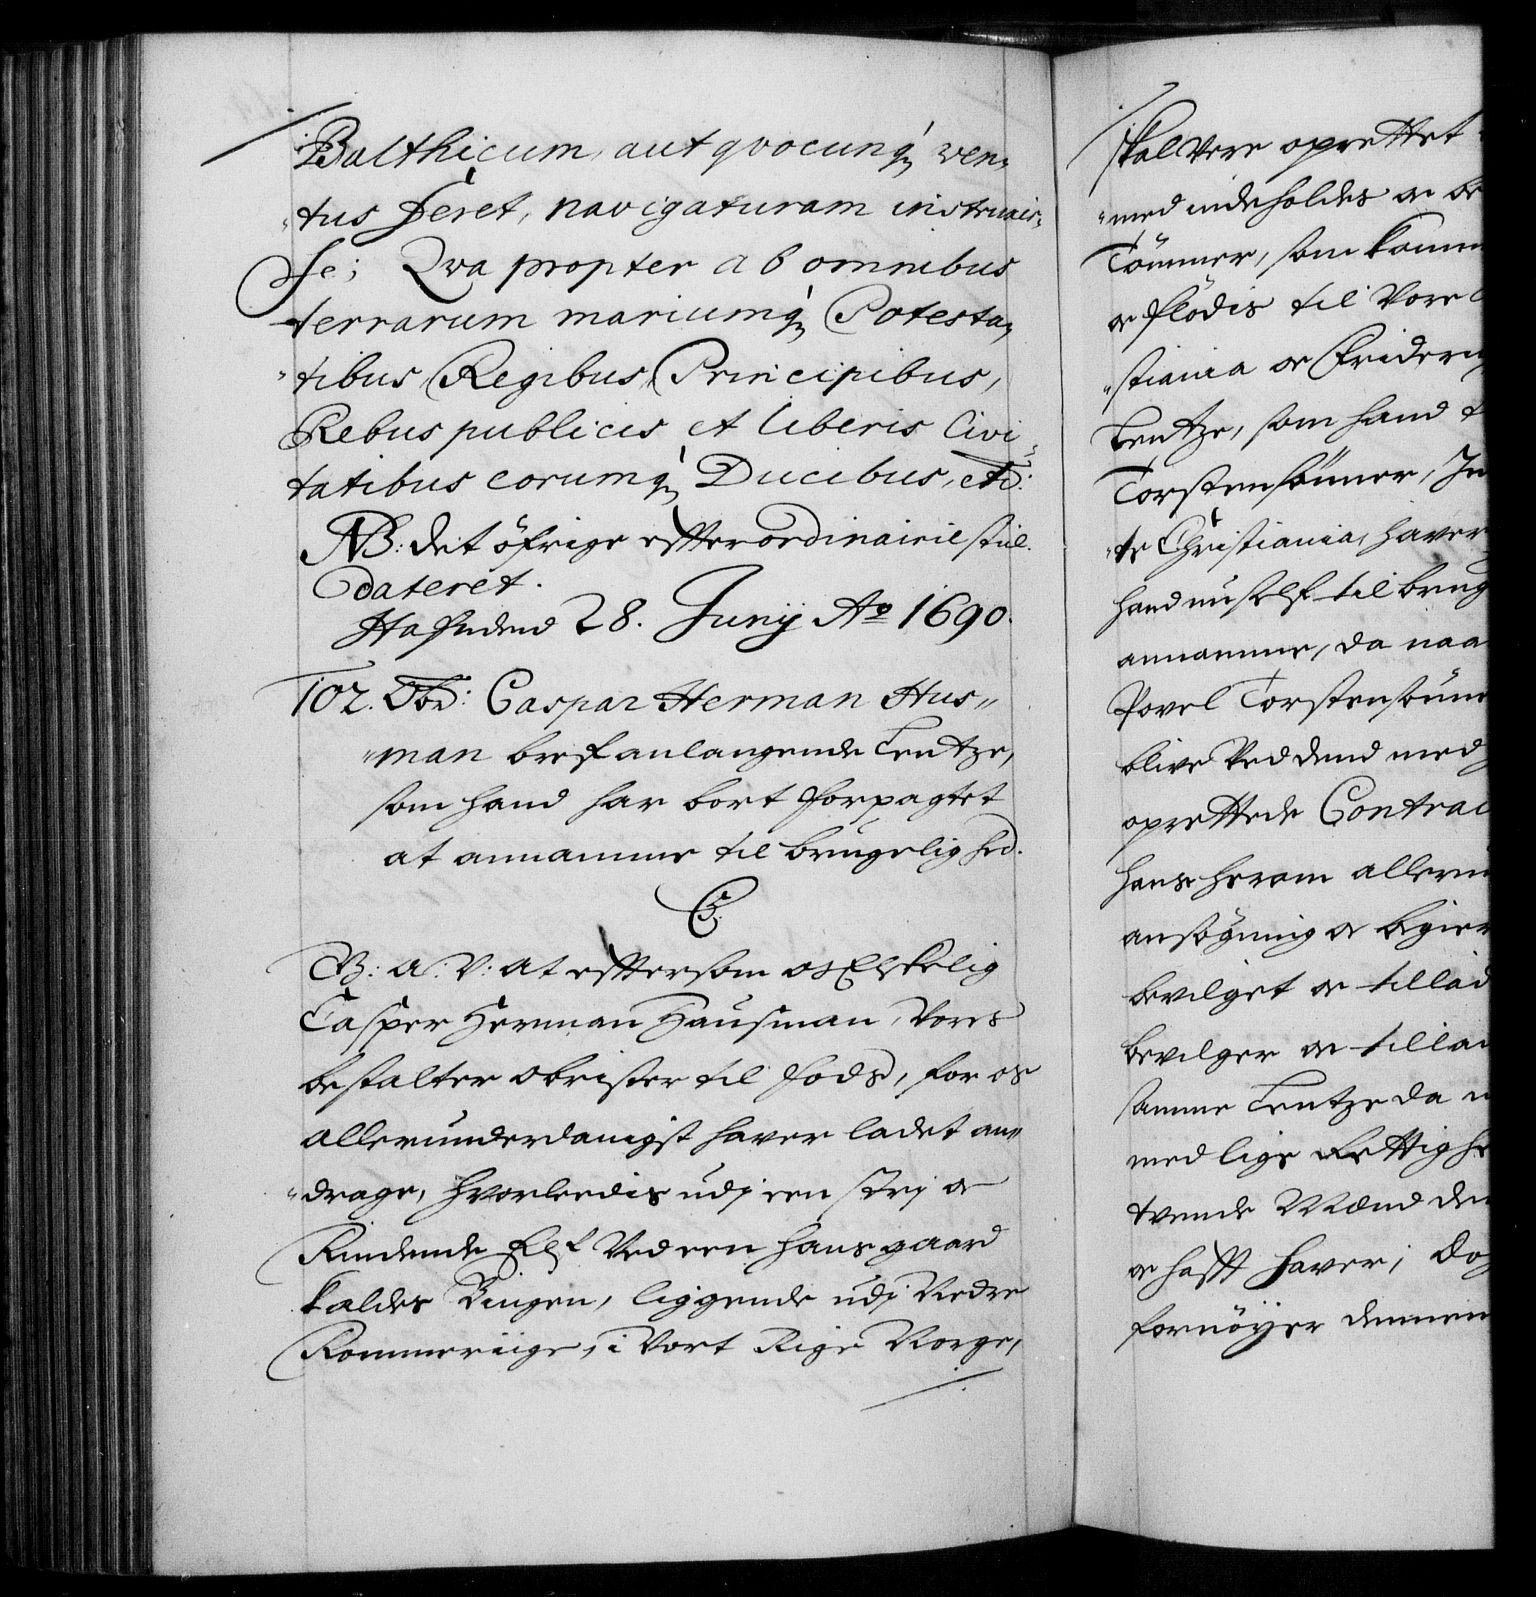 Balthicum, aut qvocunq, ven,
tus feret, navigaturam instruxis,
se; Qva propter ab omnibus
terrarum mariumq, Potesta,
tibus, Regibus, Principibus,
Rebus publicis et liberis Civi,,
tatibus eorumq, Ducibus, etc:
NB: det öfrige efter ordinairie stiil.
dateret.
Hafniæ d 28. Junij Ao 1690.
102. Obr: Caspar Herman Hus,,
man bref anlangende Lentze,
som hand har bort forpagtet
at annamme til brugelighed.
C5.
G: A: V: at eftersom os Elskelig
Casper Herman Hausman, Vores
bestalter obrister til fods, for os
allerunderdanigst haver ladet an,,
drage, hvorledis udj een strj oc
Rindende Elf Ved een hans gaard
kaldes Bingen, liggende udj Nedre
Rommeriige, i Vort Rige Norge,
skal Vere oprettet
med indeholdes oc be
Tömmer, som komm
oc flödis til Vore
stiania oc Frideric
Lentze, som hand
Torstensönner, In
te Christiania, haver
hand nu self til brug
annamme, da naa
Povel Torstensönn
blive Ved dend med
oprettede Contrac
hans herom allerun
ansögning oc begier
bevilget oc tillad
bevilger oc tillad
samme Lentze da
med lige Rettighe
tvende Mænd den
oc hafft haver; dog
fornöyer dennem